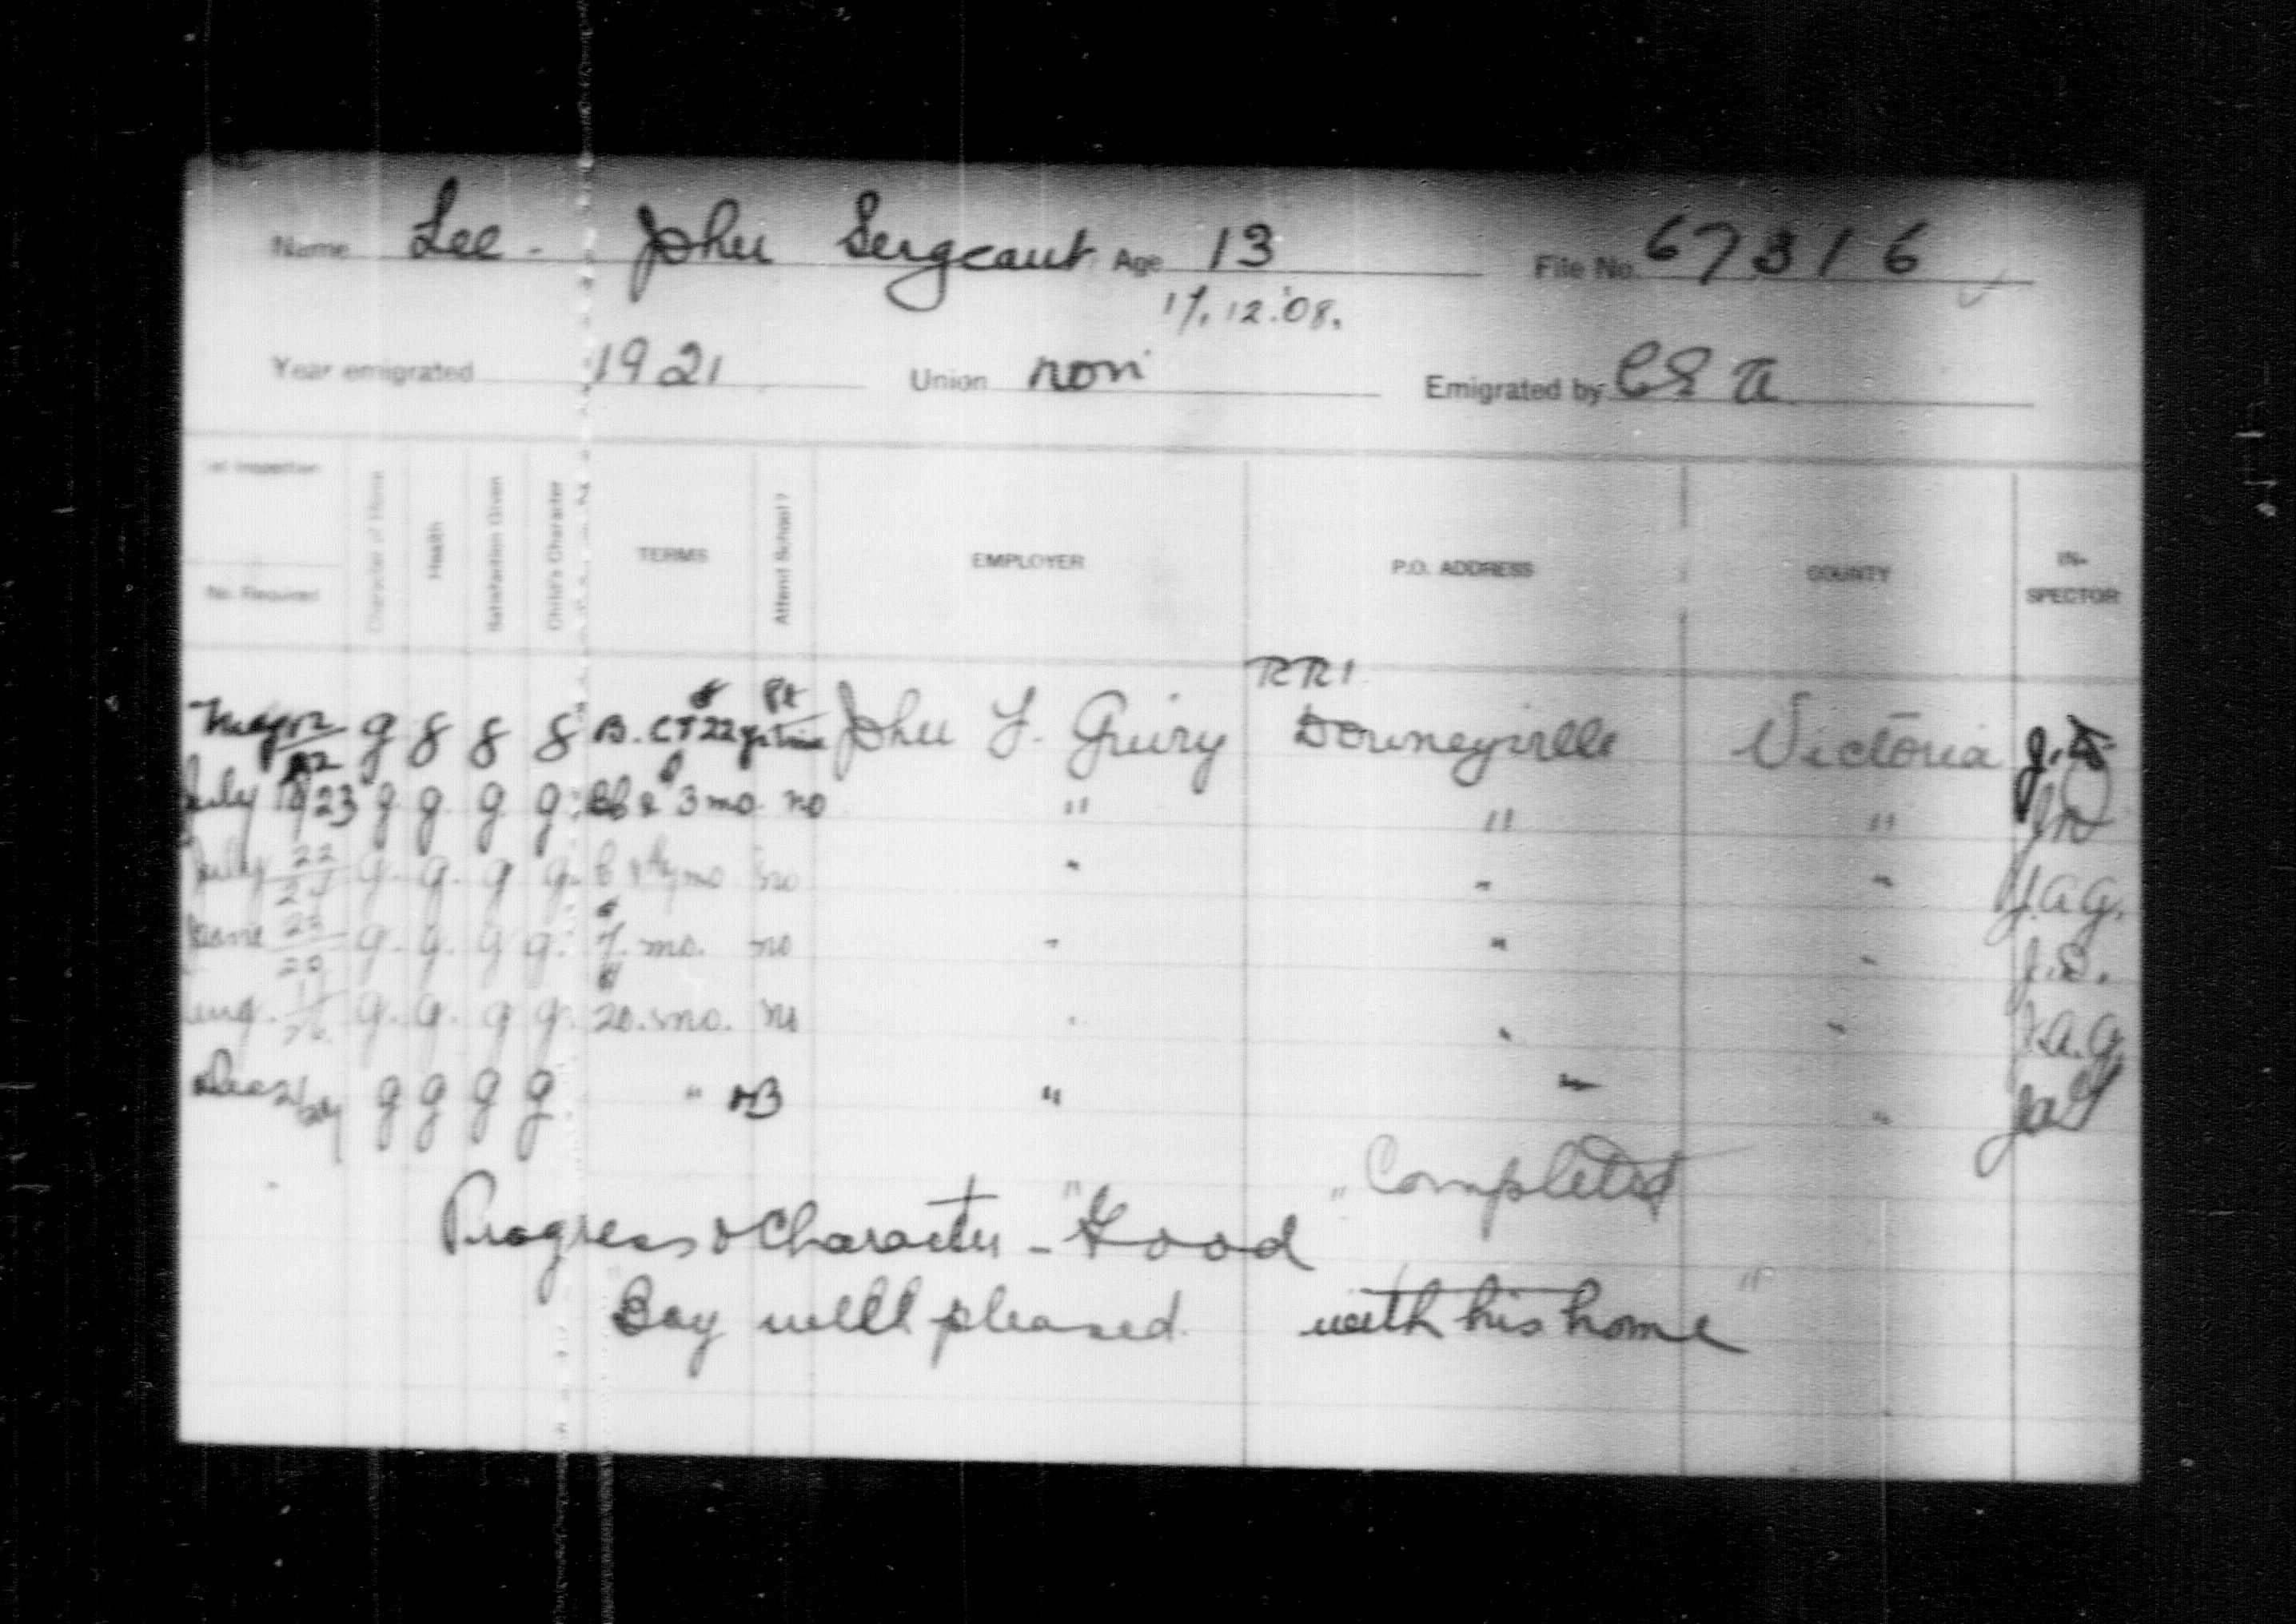 Name Lee - John Sergeant Age 13 File No. 67316
17.12.'08.
Year emigrated 1921 Union non Emigrated by C E A
Inspection
No. Required
Character of Home
Health
Satisfaction Given
Child's Character
TERMS
Attend School?
EMPLOYER
P.O. ADDRESS
COUNTY
IN-
SPECTOR
RR1
g g g g John F. Guiry Downeyville Victoria
July 23 g g g g 3 mo no " " "
July 22 g. g. g g. mo no " " " J.A.G.
g. g. g g. 7. mo. no " " "
Aug. g. g. g g. 20. mo. no " " " J.A.G.
Dec g g g g " " " "
"Completed
Progress & Character - "Good
Boy well pleased with his home"